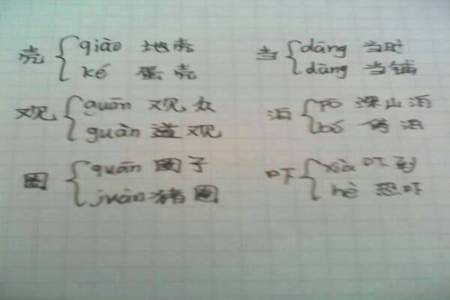 壳 qiào 地壳
ké 蛋壳
当 dāng 当时
dàng 当铺
观 guān 观众
guàn 道观
泊 pō 梁山泊
bó
圈 quān 圈子
juàn 猪圈
吓 xià 吓到
hè 恐吓